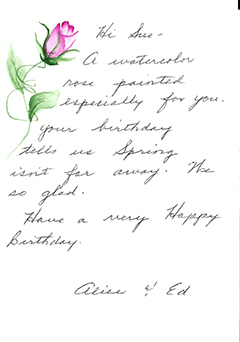 Hi Sue-
A watercolor
rose painted
especially for you.
your birthday
tells us Spring
isn't far away. We
so glad.
Have a very Happy
Birthday.
Alice & Ed